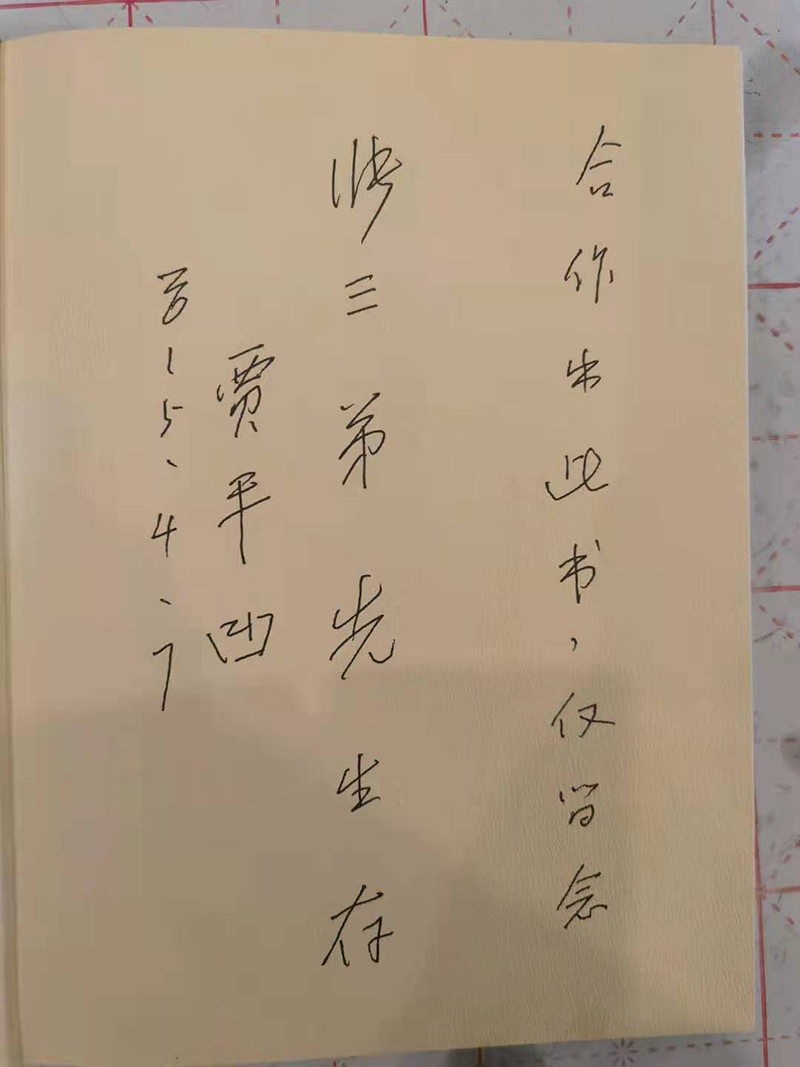 合作出此书，仅留念
三弟先生存
贾平凹
15、4、7